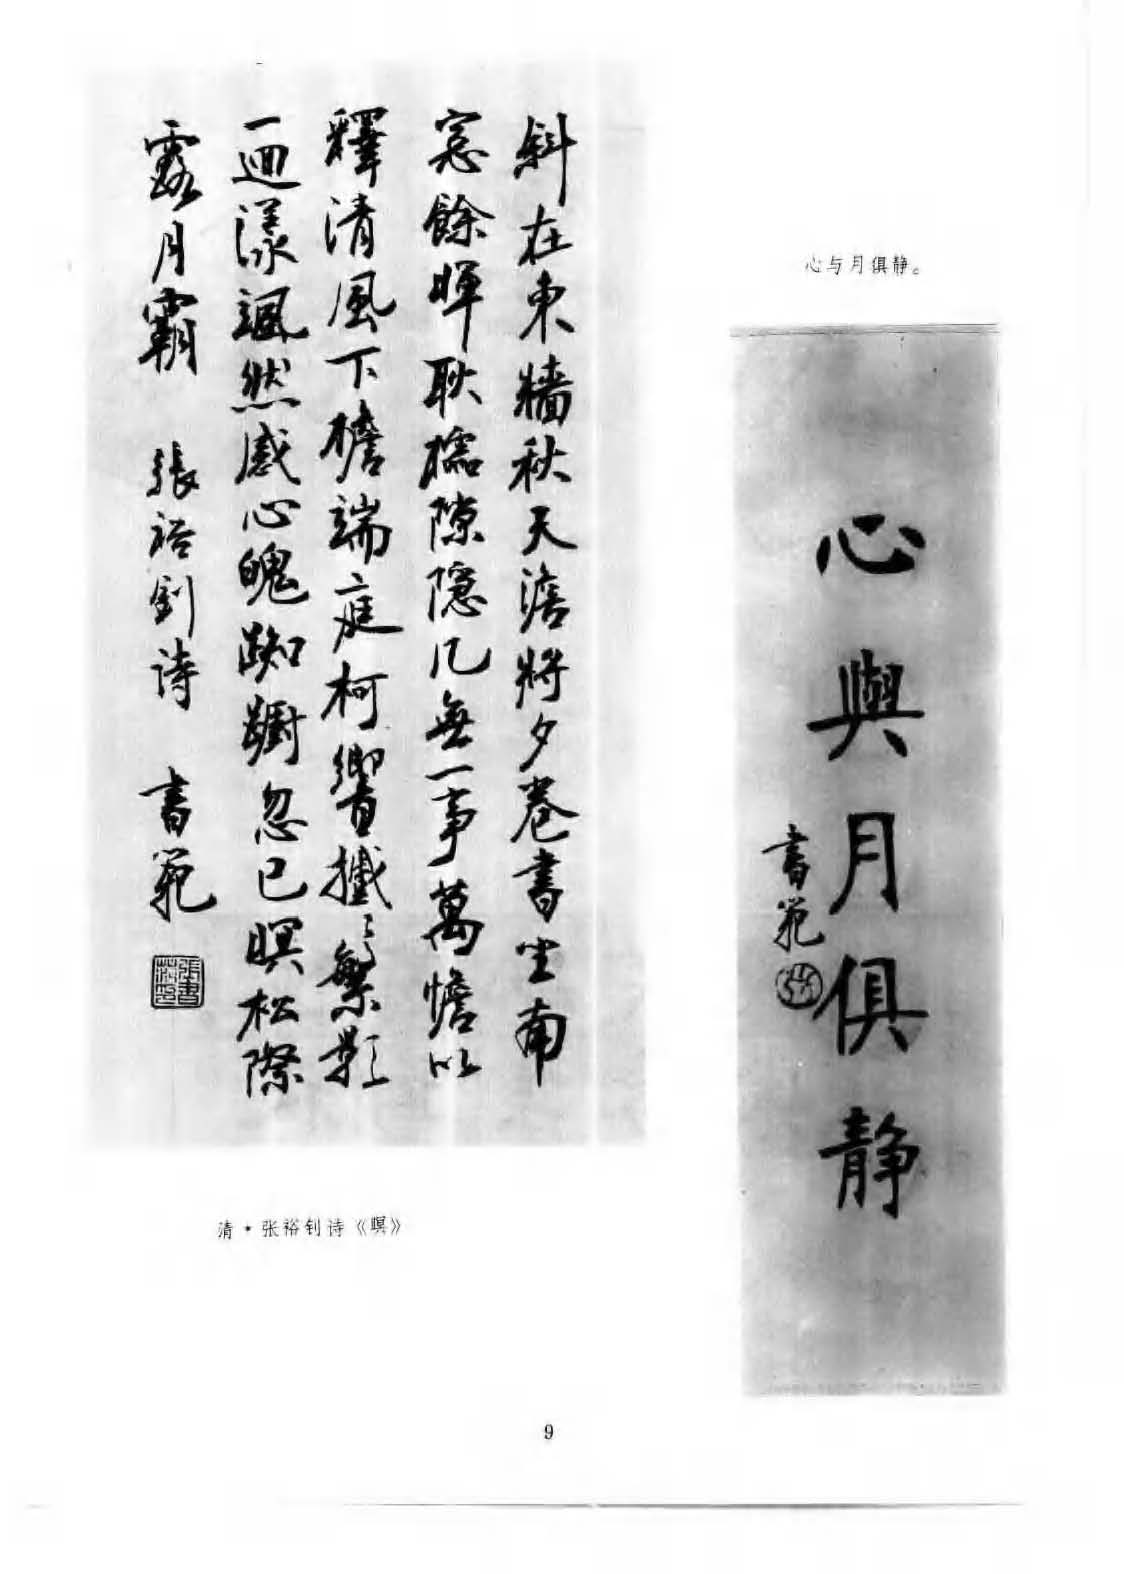 斜在東牆秋天澹將夕卷書坐南
窓餘暉耿櫺隙隱几無一事萬憺以
釋清風下檐端庭柯響摵〻繁影
一迴漾颯然感心魄踟躕忽已暝松際
露月霸 張裕釗诗 書範
張書範印
清★张裕钊诗《暝》
心与月俱静。
心與月俱静
書範
9